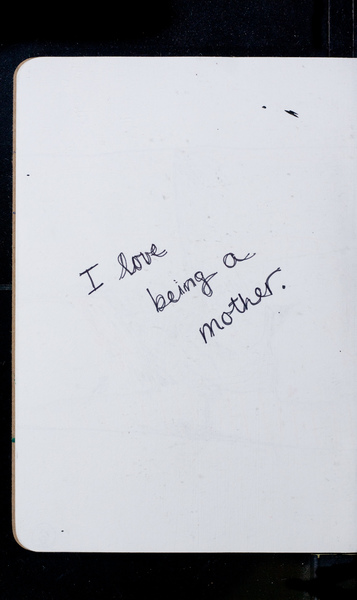 I love
being a
mother.